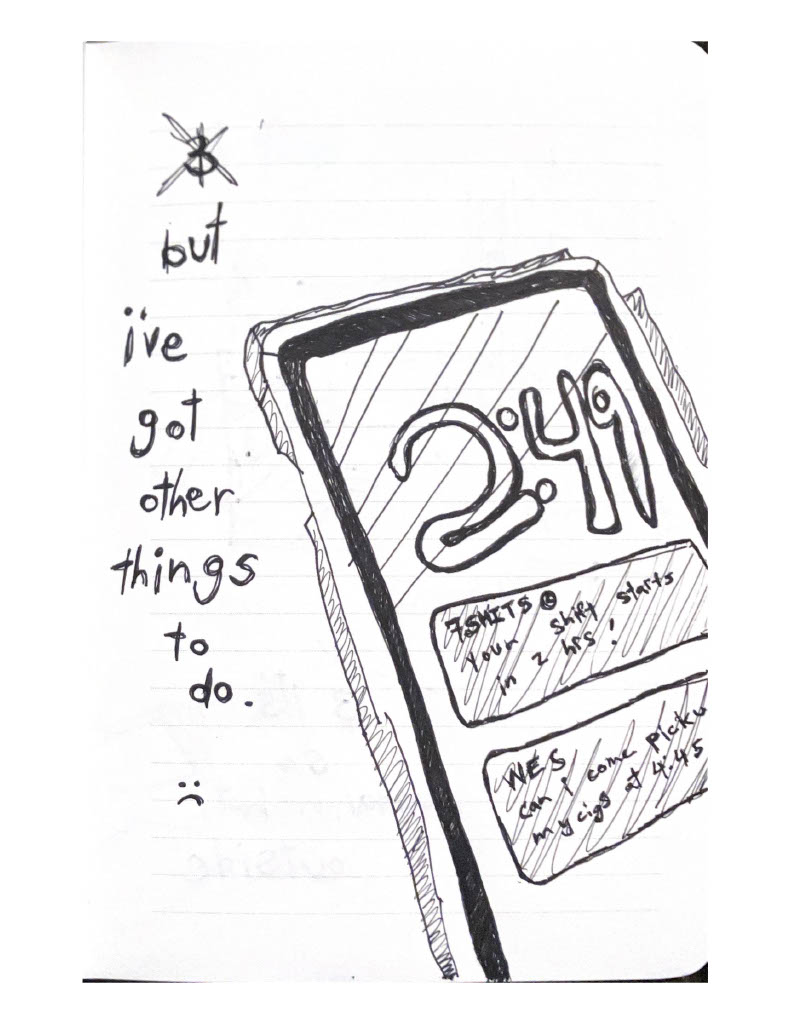 but
i've
got
other
things
to
do.
:(
2:49
7SHITS
your shift starts
in 2 hrs!
WES
can i come picku
my cigs at 4:45